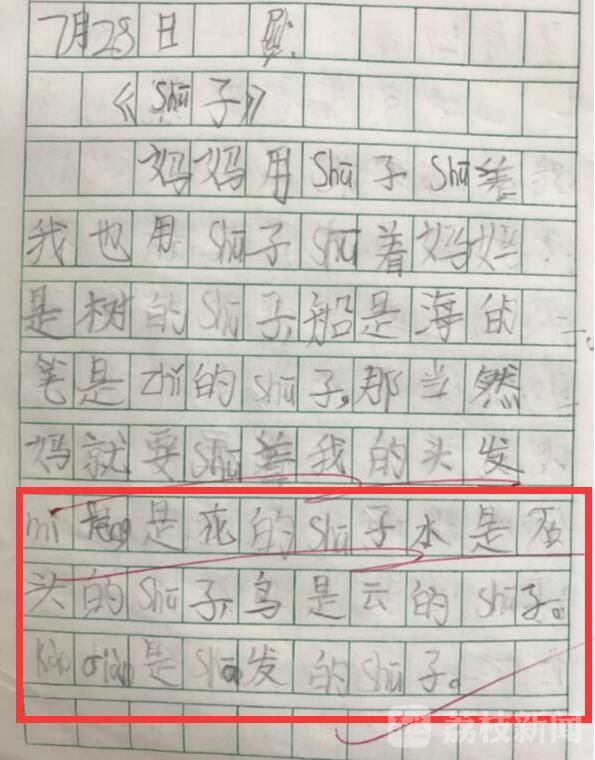 7月28日
《Shū子》
妈妈用Shū子Shū着
我也用Shū子Shū着妈妈
是树的Shū子,船是海的
笔是zhǐ的shū子,那当然
妈就要Shū着我的头发
mì是花的Shū子水是石
头的Shū子,鸟是云的shū子。
是发的Shū子。
荔枝新闻